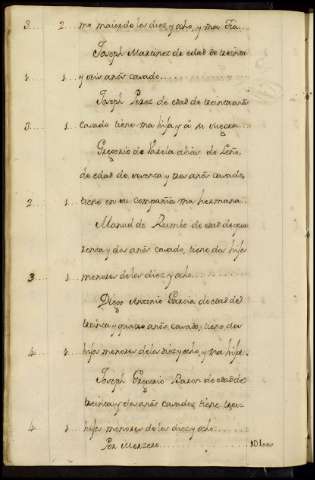 3.... 2.. mo maior de los diez y ocho, y una
Joseph Martinez de edad de treinta
1.... 1.. y seis años casado.....
Joseph Perez de edad de treinta años
3.... 1.. casado tiene una hija y a su suegra
Gregorio de de
de edad de y tres años casado,
2.... 1.. tiene en su compañia una hermana
Manuel de de edad de
y dos años casado, tiene dos hijos
3.... 1.. menores de los diez y ocho......
Diego Antonio Garcia de edad de
treinta y quatro años casado, tiene, dos
4.... 1.. hijos menores de los diez y ocho, y una hija.
Joseph Gregorio de edad de
treinta y dos años casado, tiene tres
4.... 1.. hijos menores de los diez y ocho......
Por